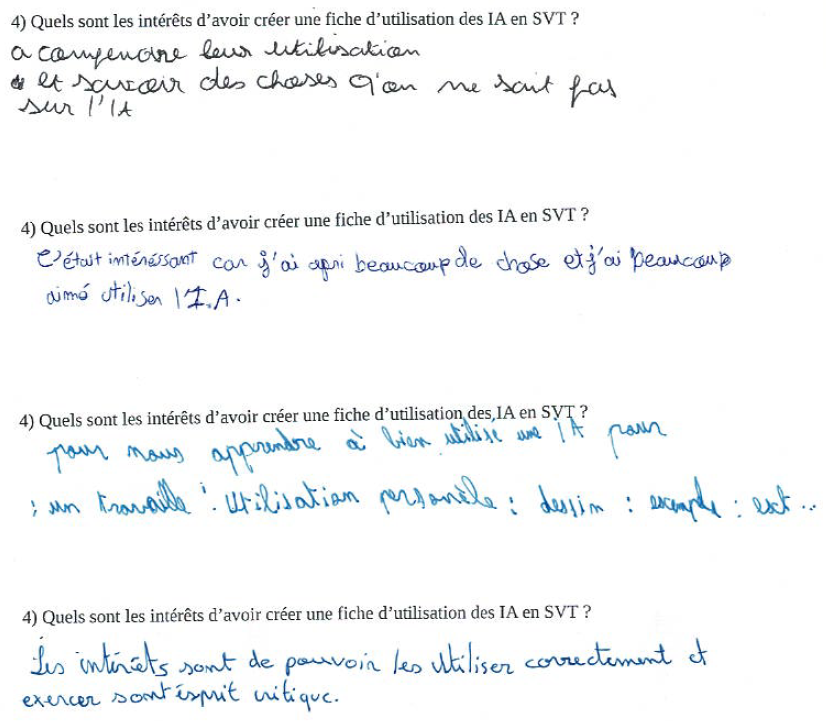 4) Quels sont les intérêts d'avoir créer une fiche d'utilisation des IA en SVT ?
a compendre leur utilisation
et savoir des choses q'on ne sait pas
sur l'IA
4) Quels sont les intérêts d'avoir créer une fiche d'utilisation des IA en SVT ?
C'était intéréssant car j'ai apri beaucoup de chose et j'ai beaucoup
aimé utiliser l'I.A.
4) Quels sont les intérêts d'avoir créer une fiche d'utilisation des IA en SVT ?
pour nous apprendre à bien utilisé une IA pour
; un travaille : Utilisation personèle : dessin : exemple : ect..
4) Quels sont les intérêts d'avoir créer une fiche d'utilisation des IA en SVT ?
Les intérêts sont de pouvoir les utiliser correctement et
exercer sont ésprit critique.